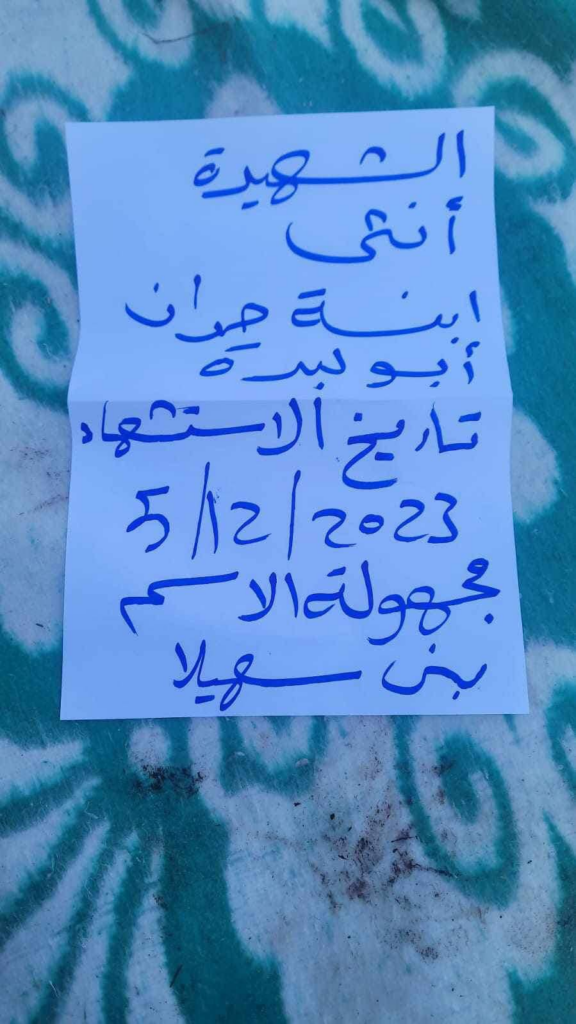 الشهيدة
أنثى
ابنة جدان
أبو لبدة
تاريخ الاستشهاد
5/12/2023
مجهولة الاسم
بني سهيلا